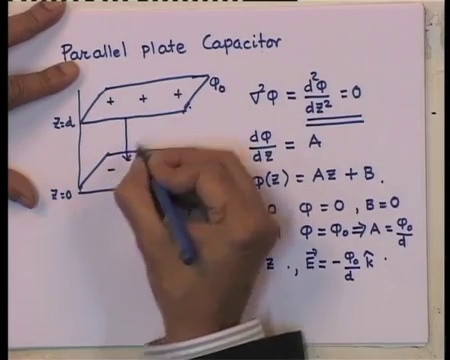 Parallel plate Capacitor
+ + +
φ₀
z=d
-
z=0
∇²φ = d²φ/dz² = 0
dφ/dz = A
φ(z) = Az + B.
0 φ=0, B=0
φ=φ₀ ⇒ A = φ₀/d
z ., E⃗ = -φ₀/d k̂.